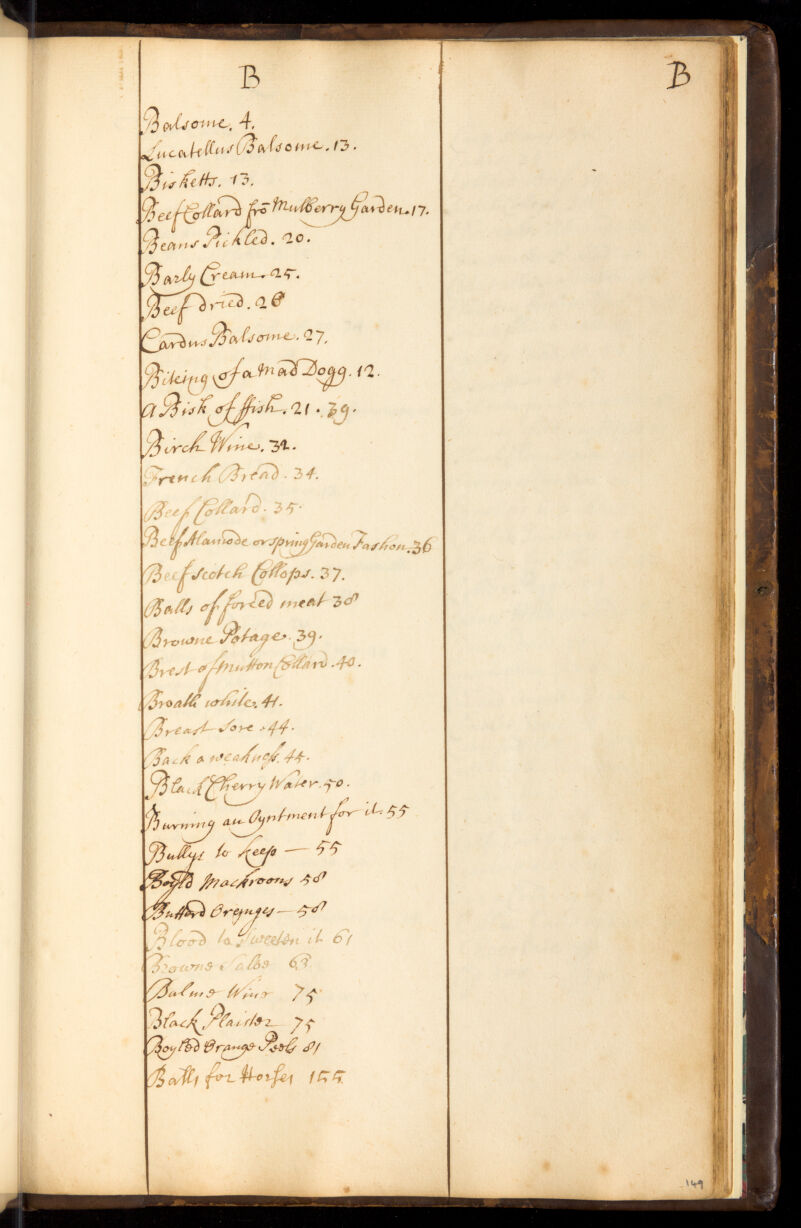 B
Balsome. 4.
Lucatellus Balsome. 13.
Bisketts. 13.
Beef Collard frō Mulberry Garden. 17.
Beans Pickled. 20.
Barly Cream. 25.
Beef dried. 26
Cardus Balsome. 27.
Biteing of a mad Dogg. 12.
A Bisk of ffish. 21. 39.
Birch Wine. 32.
French Bread. 34.
Beef Collard. 35.
Beef Alamode or spring Garden Fashon. 36
Beef Scotch Collops. 37.
Balls of forced meat 38
Browne Potage. 39.
Brest of mutton Collard. 40.
Broath white. 41.
Breast sore. 44.
Back a weakness. 44.
Black Cherry Water. 50.
Burning an Oyntment for it. 55
Bullys to keep — 55
Boyld Mackroons 58
Buttord Orenges — 58
Blood to sweeten it 61
Browne Salve 63
Balme Wine 75
Black Plaister 75
Boyled Orange Peels 81
Balls for Horses 155.
B
149